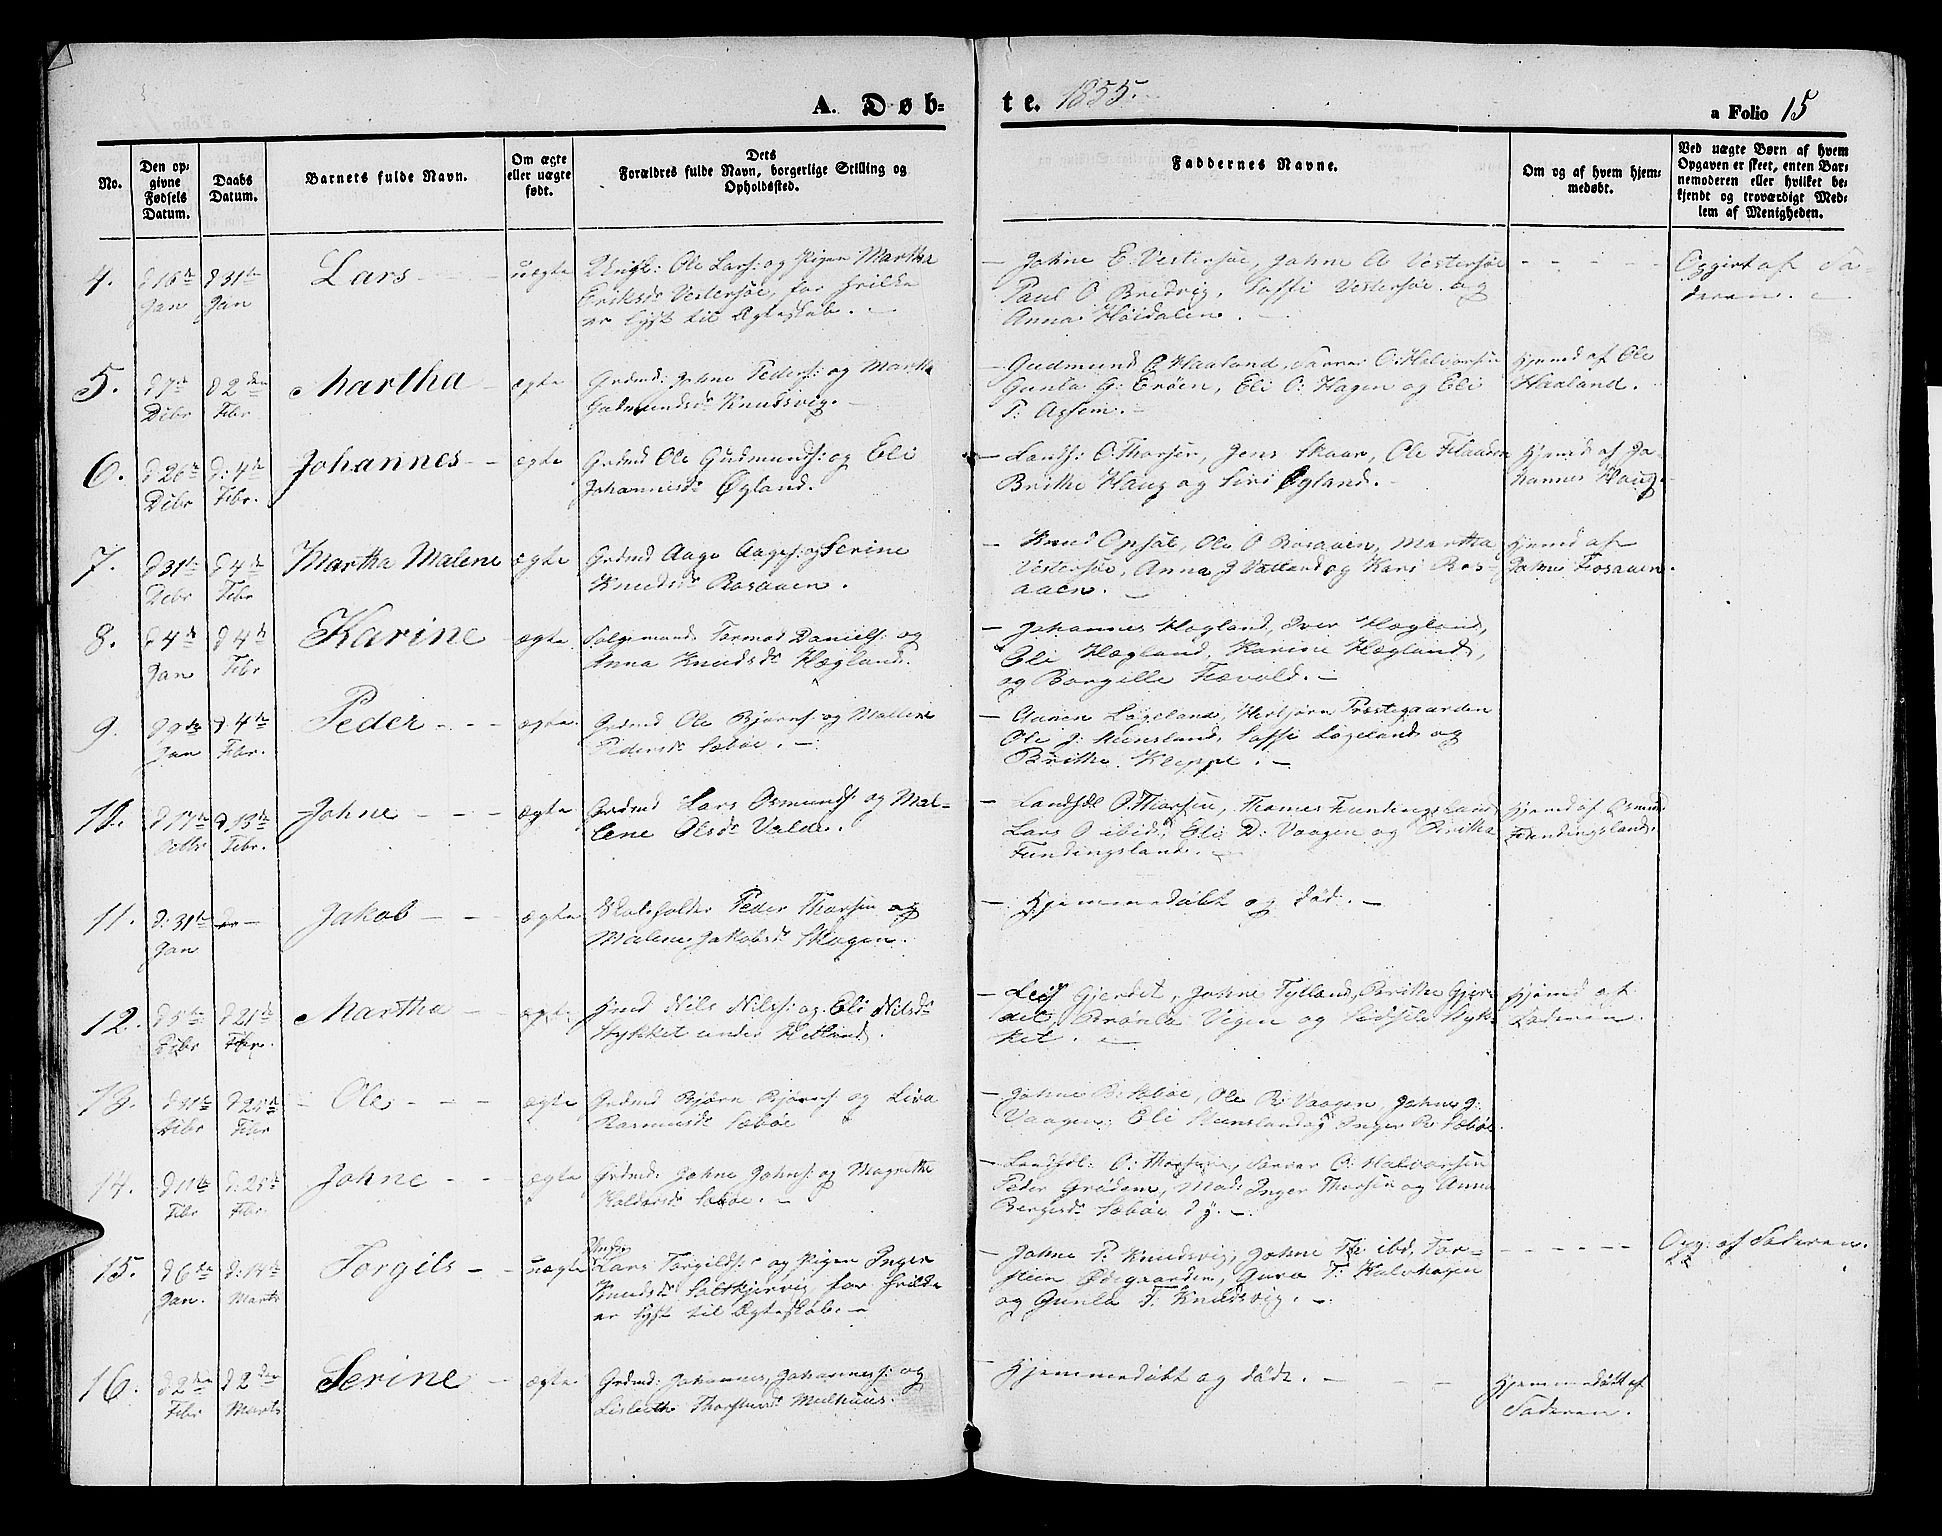 A. Døb-
te. 1855.
a Folio 15
No.
Den op-
givne
Fødsels
Datum.
Daabs
Datum.
Barnets fulde Navn.
Om ægte
eller uægte
født.
Dets
Forældres fulde Navn, borgerlige Stilling og
Opholdssted.
Faddernes Navne.
Om og af hvem hjem-
medøbt.
Ved uægte Børn af hvem
Opgaven er skeet, enten Bar-
nemoderen eller hvilket be-
kjendt og troværdigt Med-
lem af Menigheden.
4. d 16de Jan
d 31te Jan
Lars
uægte
Ole Lars: og Pigen Martha
Eriksd. Vestersøe, for hvilke
er lyst til Ægteskab.
Johne E. Vestersøe, Johne A Vestersøe
Paul O. Bredvig, Soffi Vestersøe og
Anna Høidalen.
Opgivet af Fa-
deren.
5. d 7de Dcbr
d 2den Febr
Martha
ægte
Grdmd: Johne Peders: og Martha
Gudmundsd. Knudsvig.
Gudmund O Haaland, O: Halvorsen
Gunla G: Erøen, Eli O: Hagen og Eli
Hjemd af Ole
Haaland.
6. d 26de Dcbr
d: 4de Febr.
Johannes
ægte
Grdmd Ole Gudmunds: og Eli
Johannesd. Øgland.
Landh: O. Thorsen, Jens Skaar, Ole
Brithe Haug og Siri Øgland.
Hjemd af Jo-
hannes Haug.
7. d 31te Dcbr
d 4de Febr
Martha Malene
ægte
Grdmd Aage Aages: og Serine
Knudsd. Rosaaen.
Knud Opsal, Ole O Rosaaen, Martha
Vestersøe, Anna J Vatland og Kari Ros-
aaen.
Hjemd af
Johne Rosaaen.
8. d 4de Jan
d 4de Febr
Karine
ægte
Tormod Daniels: og
Anna Knudsd. Hægland.
Johannes Hægland, Iver Hægland,
Eli Hægland, Karine Hægland,
og Borgille Tævold.
9. d 9de Jan
d. 4de Febr.
Peder
ægte
Grdmd Ole Bjørns: og Mallene
Pedersd. Sæbøe.
Løgeland, Herbjørn Prestegaarden
Ole J: Hunsland, Soffi Løgeland og
Brithe Kleppe.
10. d 17de Octbr
d 13de Febr.
Johne
ægte
Grdmd Lars Osmunds: og Mal-
lene Olsd. Valde.
O. Thorsen, Thomas Fundingsland,
Lars O ibid, Eli D: Vaagen og Britha
Fundingsland.
Hjemd af Osmund
Fundingsland.
11. d: 31te Jan
Jakob
ægte
Peder Thorsen og
Malene Jakobsd. Skogen.
Hjemmedøbt og død.
12. d 5te Febr
d 21de Febr.
Martha
ægte
Nils Nils: og Eli Nilsd.
Stykket under Hetland.
Leif Gjerdet, Johne Tytland, Brithe Gjer-
det, Brønla Vigen og Sidsele Styk-
ket.
Hjemd af
Faderen.
13. d 31te Dcbr
d 25de Febr
Ole
ægte
Grdmd Bjørn Bjørns og Liva
Rasmusd. Sæbøe
Johne B: Sæbøe, Ole R: Vaagen, Johne J:
Vaagen, Eli Hunsland og Inger R: Sæbøe.
14. d 11te Febr
d: 25de Febr.
Johne
ægte
Grdmd: Johne Johns: og Magrethe
Sæbøe.
O: Thorsen, O: Halvorsen
Peder Grødem, Mad: Inger Thorsen og Anna
Bergesd. Sæbøe
15. d 6te Jan.
d: 14de Marts
Torgils
uægte
Lars Torgilds: og Pigen Inger
Knudsd. Saltkjervig for hvilke
er lyst til Ægteskab.
Johne P: Knudsvig, Johne ibd, Tor-
stein Ødegaarden, Guro T: Kalvhagen
og Gunla T: Knudsvig.
Opg: af Faderen.
16. d: 2den Febr
d 2den Marts
Serine
ægte
Grdmd: Johannes Johanness: og
Lisbeth Thorstensd. Meelhuus.
Hjemmedøbt og døde.
Hjemmedøbt af
Faderen.